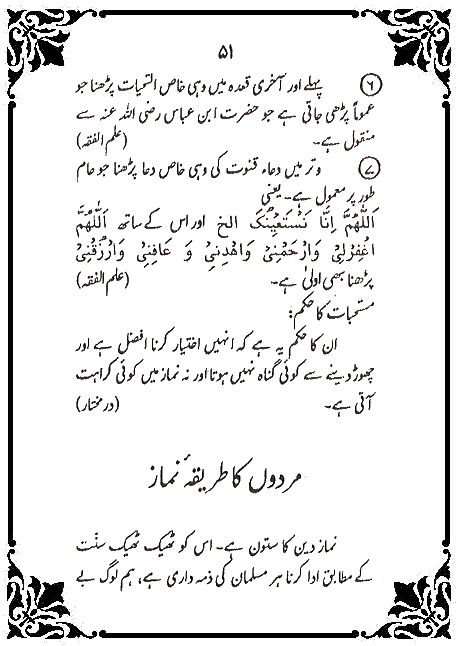 ۵۱
۶ پہلے اور آخری قعدہ میں وہی خاص التحیات پڑھنا جو
عموماً پڑھی جاتی ہے جو حضرت ابن عباس رضی اللہ عنہ سے
منقول ہے۔ (علم الفقہ)
۷ وتر میں دعاء قنوت کی وہی خاص دعا پڑھنا جو عام
طور پر معمول ہے۔ یعنی
اَللّٰهُمَّ اِنَّا نَسْتَعِيْنُكَ الخ اور اس کے ساتھ اَللّٰهُمَّ
اغْفِرْلِيْ وَارْحَمْنِيْ وَاهْدِنِيْ وَ عَافِنِيْ وَارْزُقْنِيْ
پڑھنا بھی اولیٰ ہے۔ (علم الفقہ)
مستحبات کا حکم:
ان کا حکم یہ ہے کہ انہیں اختیار کرنا افضل ہے اور
چھوڑ دینے سے کوئی گناہ نہیں ہوتا اور نہ نماز میں کوئی کراہت
آتی ہے۔ (درمختار)
مردوں کا طریقۂ نماز
نماز دین کا ستون ہے۔ اس کو ٹھیک ٹھیک سنّت
کے مطابق ادا کرنا ہر مسلمان کی ذمہ داری ہے، ہم لوگ بے